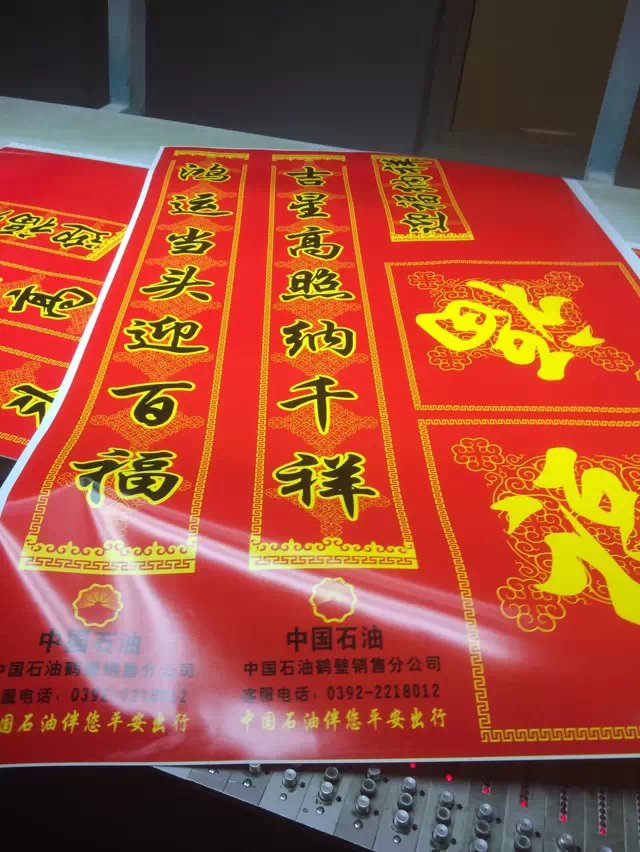 鸿运当头迎百福
吉星高照纳千祥
迎福纳祥
福
福
中国石油
中国石油鹤壁销售分公司
客服电话：0392-2218012
中国石油伴您平安出行
中国石油
中国石油鹤壁销售分公司
客服电话：0392-2218012
中国石油伴您平安出行
迎福
高